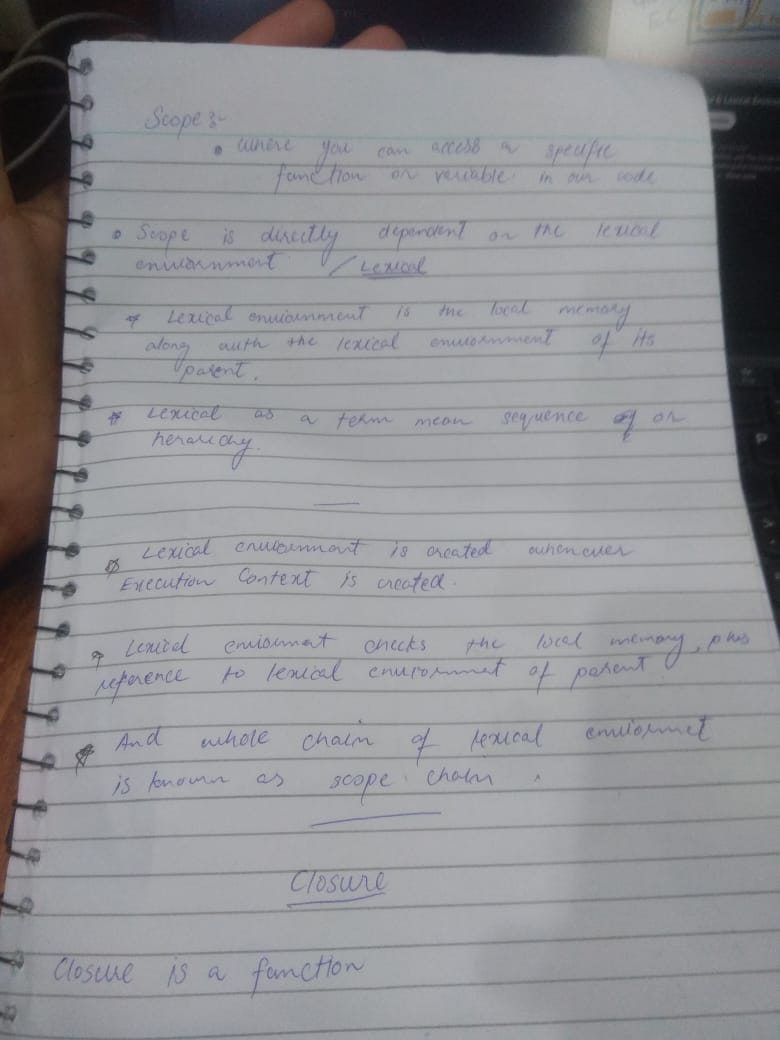 Scope :-
• where you can access a specific
function or variable in our code
• Scope is directly dependent on the lexical
enviornment / Lexical
* Lexical enviornment is the local memory
along with the lexical enviornment of its
parent.
* Lexical as a term mean sequence or
herarchy.
Lexical enviornment is created whenever
Execution Context is created.
Lexical enviorment checks the local memory, plus
reference to lexical enviornmet of parent
* And whole chain of lexical enviornmet
is known as scope chain.
Closure
Closure is a function